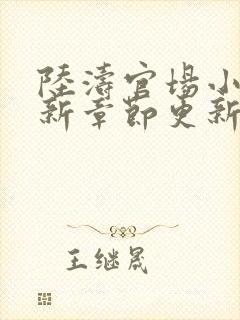 陸濤官場小
新章節更新
王继晟